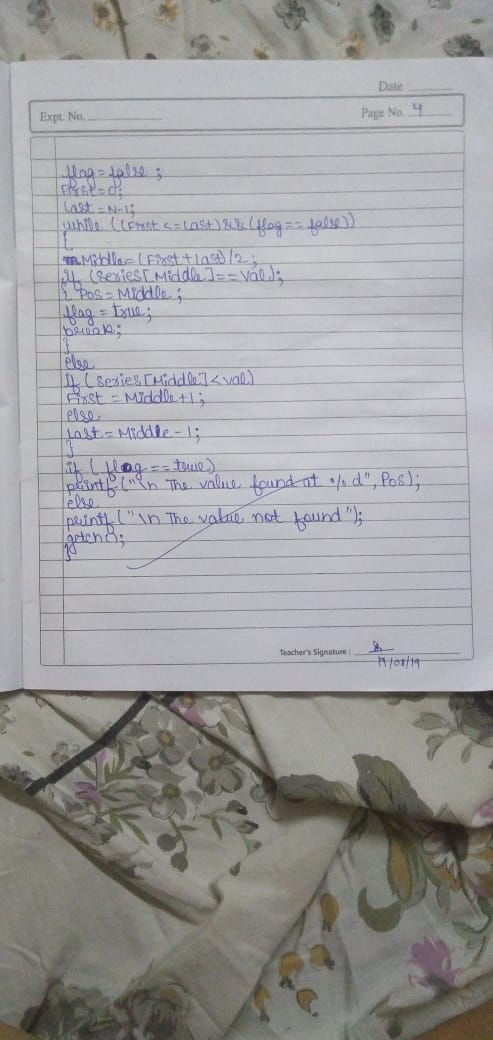 Date
Expt. No.
Page No. 4
flag = false ;
First = 0;
Last = N-1;
while ((First <= Last) && (flag == false))
{
Middle = (First + Last)/2;
if (series [Middle] == val);
{ Pos = Middle ;
flag = true;
break;
}
else
if ( series [Middle] < val)
First = Middle + 1 ;
else
Last = Middle - 1;
}
if ( flag == true)
printf ("\n The value found at %d", Pos);
else
printf ("\n The value not found");
getch();
}
Teacher's Signature :
19/08/19